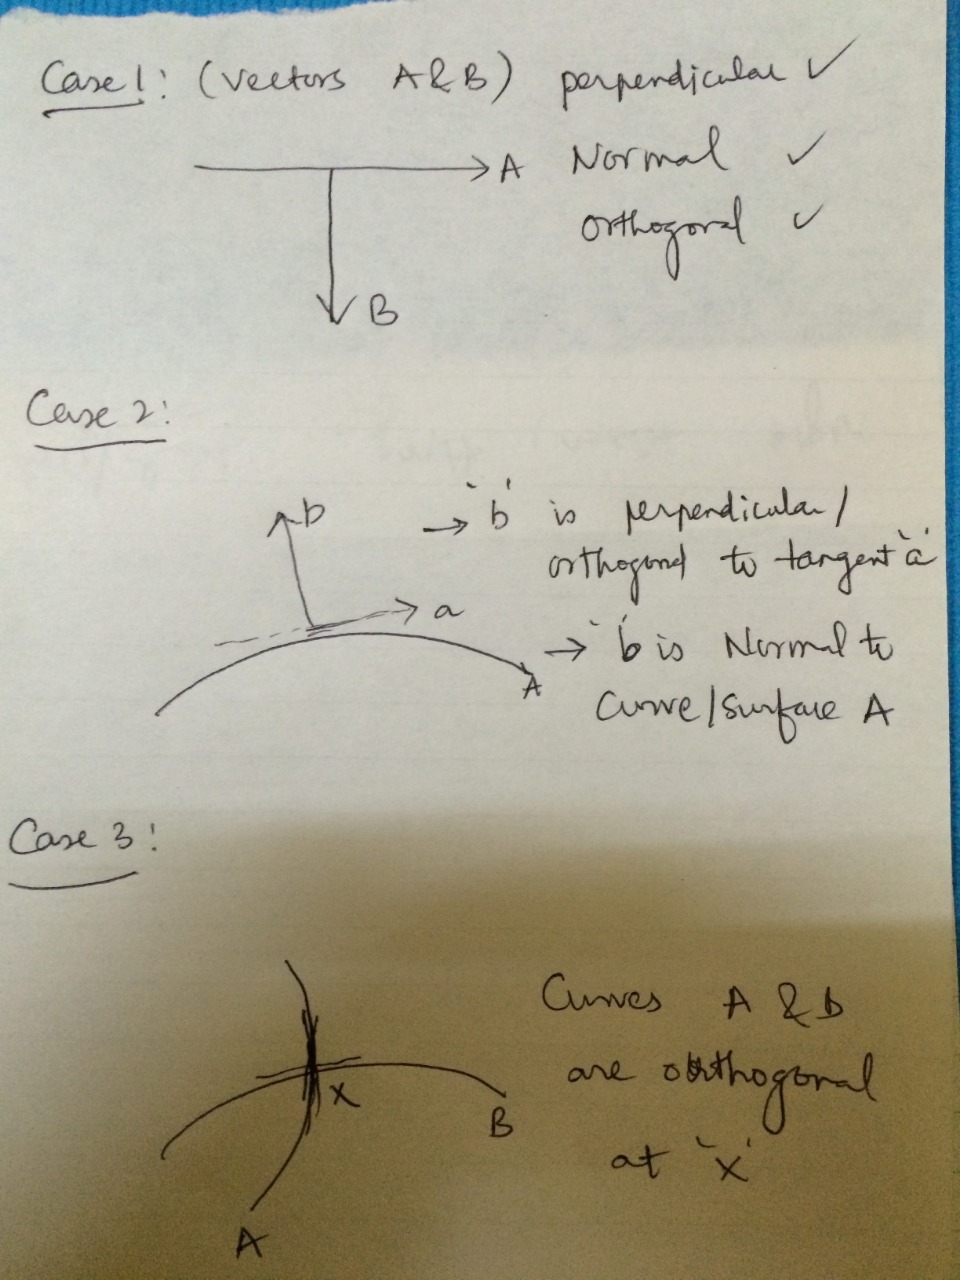 Case 1: (Vectors A & B) perpendicular ✓
A Normal ✓
Orthogonal ✓
B
Case 2:
b
→ 'b' is perpendicular/
orthogonal to tangent 'a'
a
→ 'b' is Normal to
A
Curve/Surface A
Case 3:
Curves A & B
are orthogonal
X
B
at 'x'
A